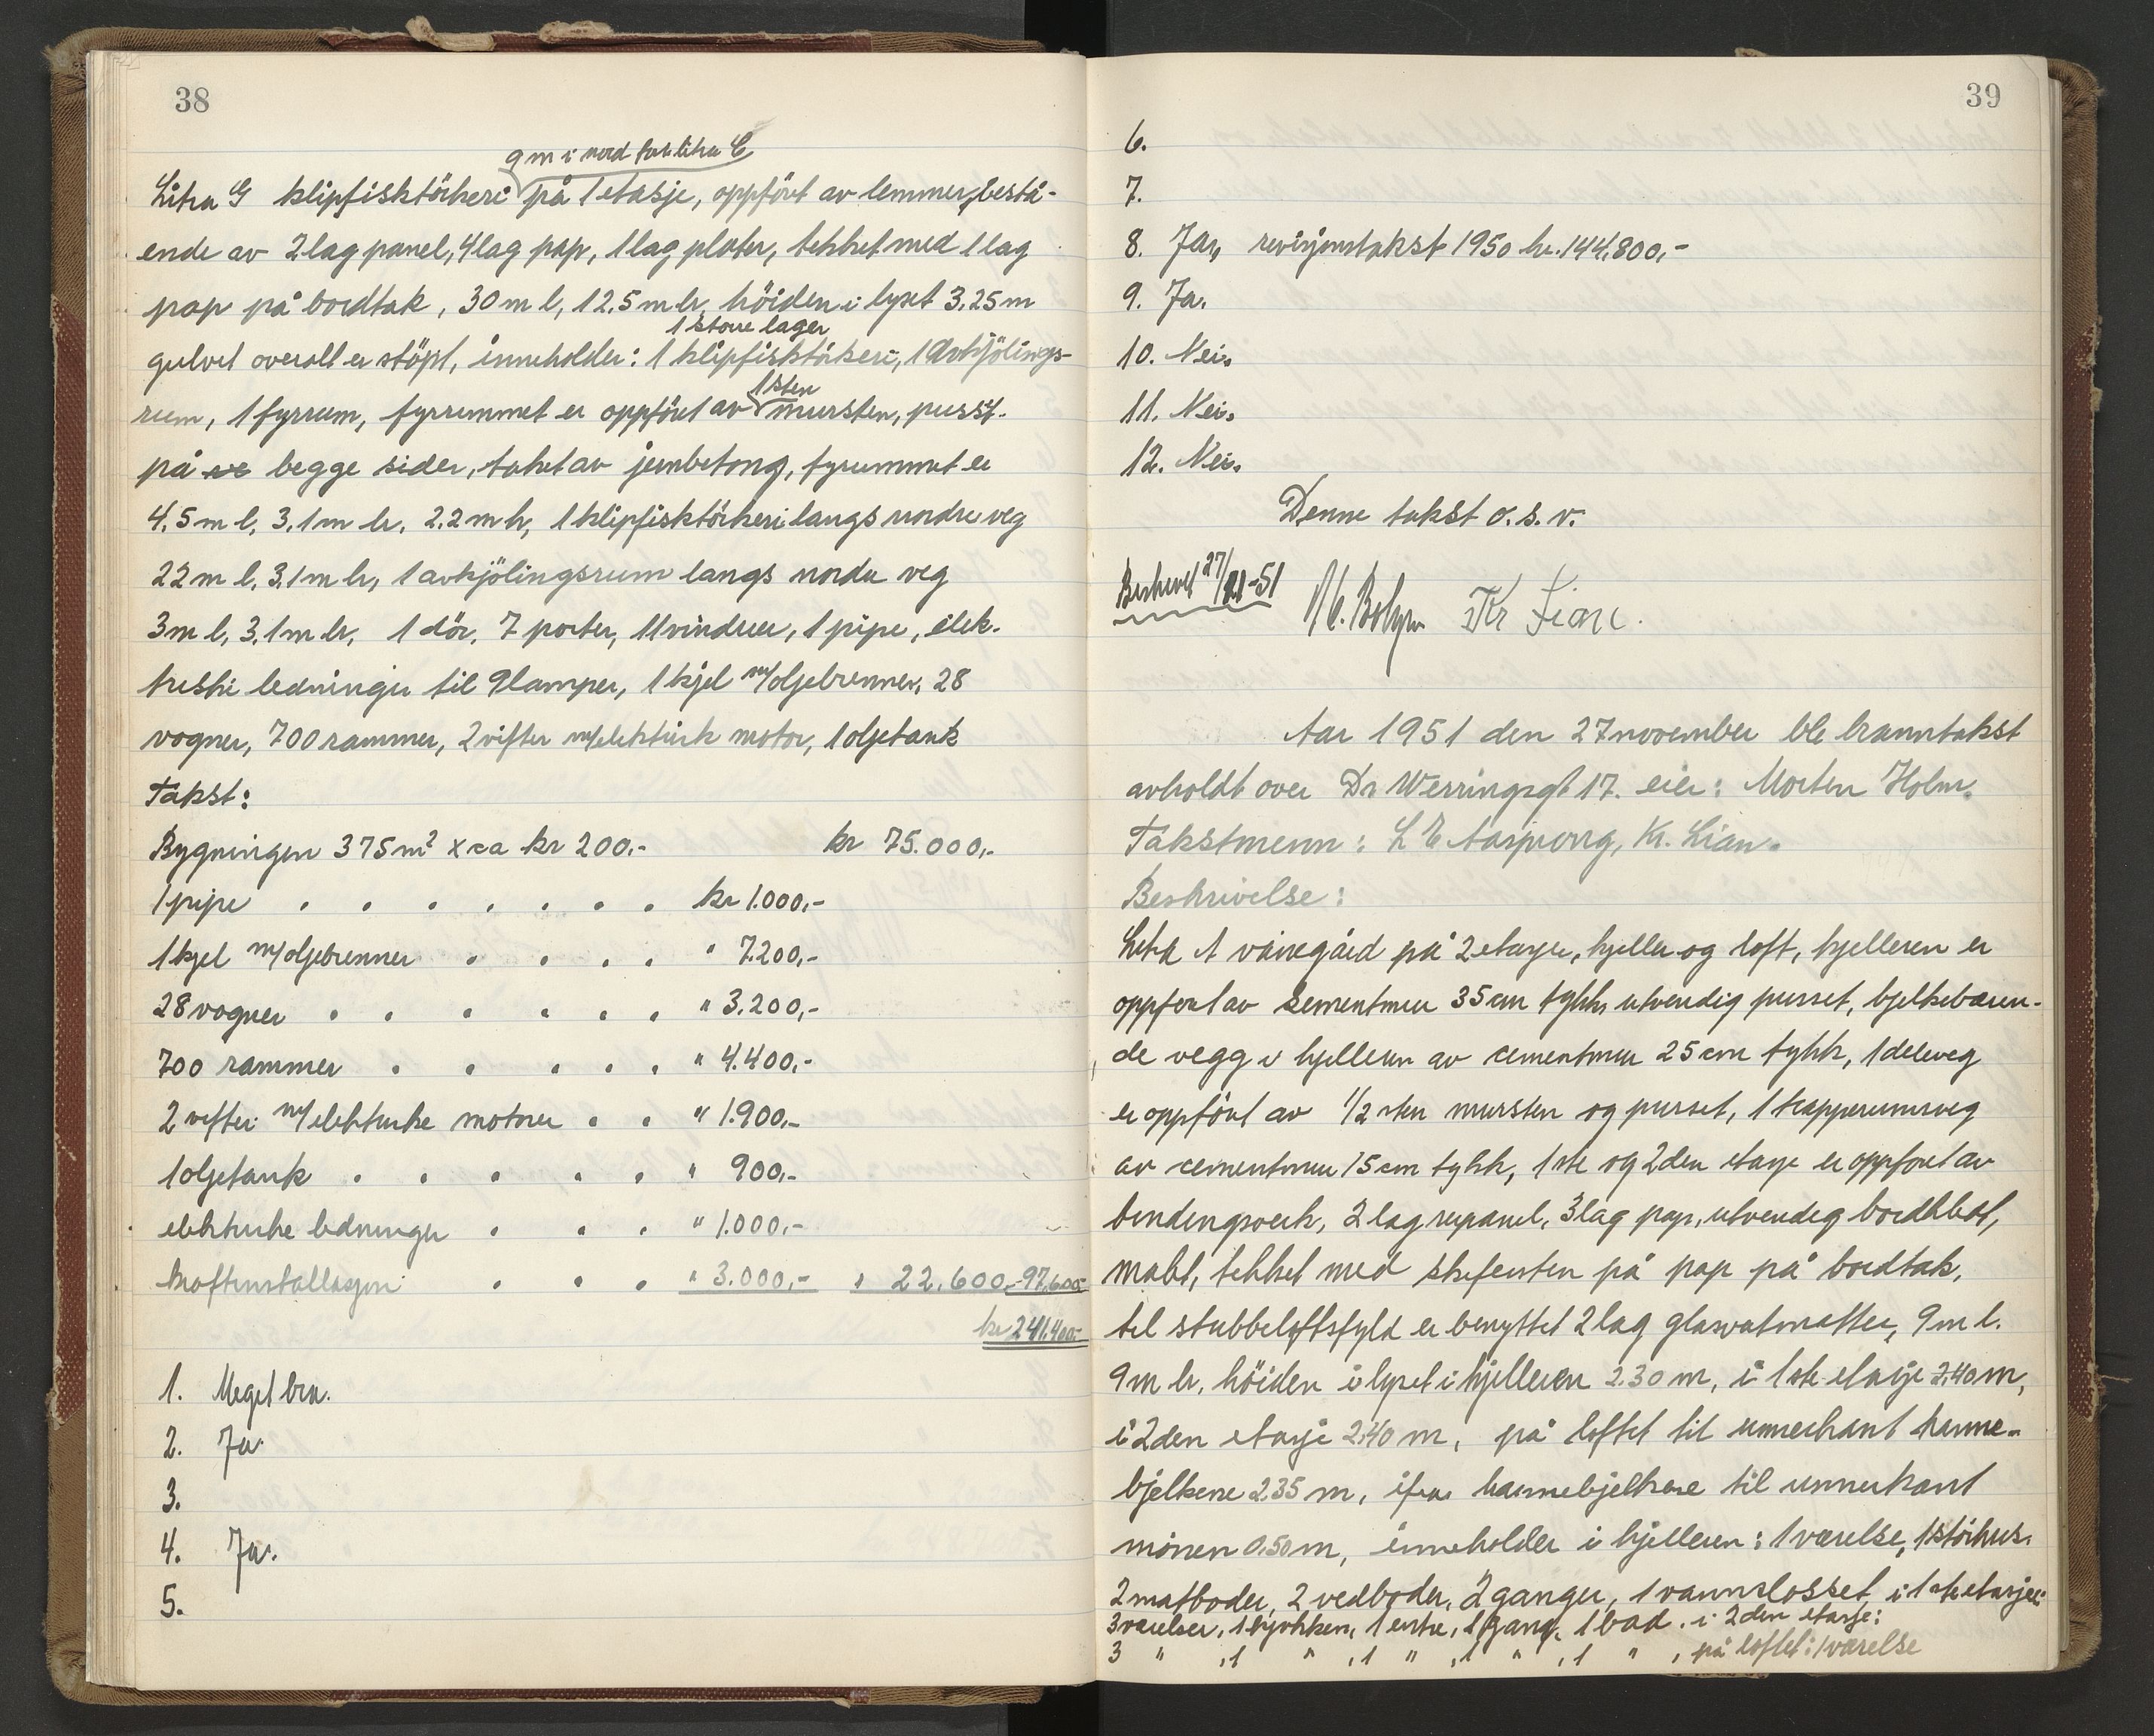 38
9 m i nord for litra C
Litra G klipfisktörkeri på 1 etasje, oppfört av lemmer, bestå-
ende av 2 lag panel, 4 lag pap, 1 lag plater, tekket med 1 lag
pap på bordtak, 30 m l, 12.5 m br, höiden i lyset 3.25 m
1 större lager
gulvet overalt er stöpt, inneholder: 1 klipfisktörkeri, 1 Avkjölings-
1 sten
rum, 1 fyrrum, fyrrummet er oppfört av mursten, pusst.
på begge sider, taket av jernbetong, fyrummet er
4.5 m l, 3.1 m br, 2.2 m h, 1 klipfisktörkeri langs nordre veg
22 m l, 3.1 m br, 1 avkjölingsrum langs nordre veg
3 m l, 3.1 m br, 1 dör, 7 porter, 11 vinduer, 1 pipe, elek-
triske ledninger til 9 lamper, 1 kjel m/oljebrenner, 28
vogner, 700 rammer, 2 vifter m/elektrisk motor, 1 oljetank
Takst:
Bygningen 375 m² x ca kr 200.- kr 75.000,-
1 pipe . . . . . . . kr 1.000,-
1 kjel m/oljebrenner . . . . " 7.200,-
28 vogner . . . . . . " 3.200,-
700 rammer . . . . . " 4.400,-
2 vifter m/elektriske motorer . . " 1.900,-
1 oljetank . . . . . " 900,-
elektriske ledninger . . . " 1.000,-
kraftinstallasjon . . . " 3.000,- " 22.600,- 97.600,-
kr 241.400,-
1. Meget bra.
2. Ja.
3.
4. Ja.
5.
39
6.
7.
8. Ja, revisjonstakst 1950 kr. 144.800,-
9. Ja.
10. Nei.
11. Nei.
12. Nei.
Denne takst o.s.v.
Beskrevet 27/11-51 Kr Lian.
Aar 1951 den 27 november ble branntakst
avholdt over Dr Werringsgt 17. eier: Morten Holm.
Takstmenn: L E Aasprong, Kr. Lian.
Beskrivelse:
Litra A våningård på 2 etasjer, kjeller og loft, kjelleren er
oppfört av sementmur 35 cm tykk, utvendig pusset, bjelkebæren-
de vegg i kjelleren av cementmur 25 cm tykk, 1 deleveg
er oppfört av 1/2 sten mursten og pusset, 1 trapperumsveg
av cementmur 15 cm tykk, 1ste og 2den etasje er oppfört av
bindingsverk, 2 lag rupanel, 3 lag pap, utvendig bordkledt,
malt, tekket med skifersten på pap på bordtak,
til stubbeloftsfyld er benyttet 2 lag glasvatmatter, 9 m l.
9 m br, höiden i lyset i kjelleren 2.30 m, i 1ste etasje 2.40 m,
i 2den etasje 2.40 m, på loftet til unnerkant hanne-
bjelkene 2.35 m, ifra hannebjelkene til unnerkant
mönen 0.50 m, inneholder i kjelleren: 1 værelse, 1 störhus.
2 matboder, 2 vedboder, 2 ganger, 1 vannklosset, i 1ste etasje:
3 værelser, 1 kjökken, 1 entre, 1 gang, 1 bad. i 2den etasje:
3 " , 1 " , 1 " , 1 " , 1 " , på loftet: 1 værelse